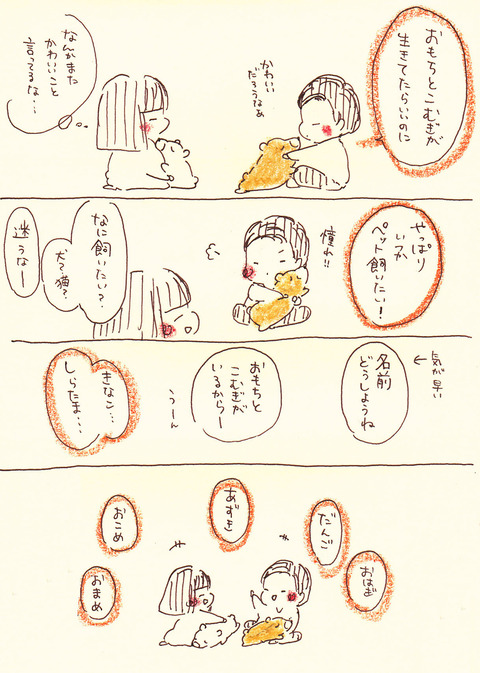 おもちとこむぎが
生きてたらいいのに
かわいい
だろうなぁ
なんかまた
かわいいこと
言ってるな…
やっぱり
いつか
ペット飼いたい！
憧れ!!
なに飼いたい？
犬？猫？
迷うなー
←気が早い
名前
どうしようね
おもちと
こむぎが
いるからー
うーん
きなこ…
しらたま…
おはぎ
だんご
あずき
おこめ
おまめ